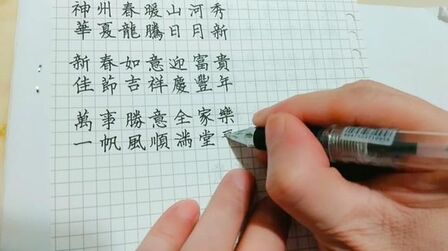 神州春暖山河秀
華夏龍騰日月新
新春如意迎富貴
佳節吉祥慶豐年
萬事勝意全家樂
一帆風順滿堂